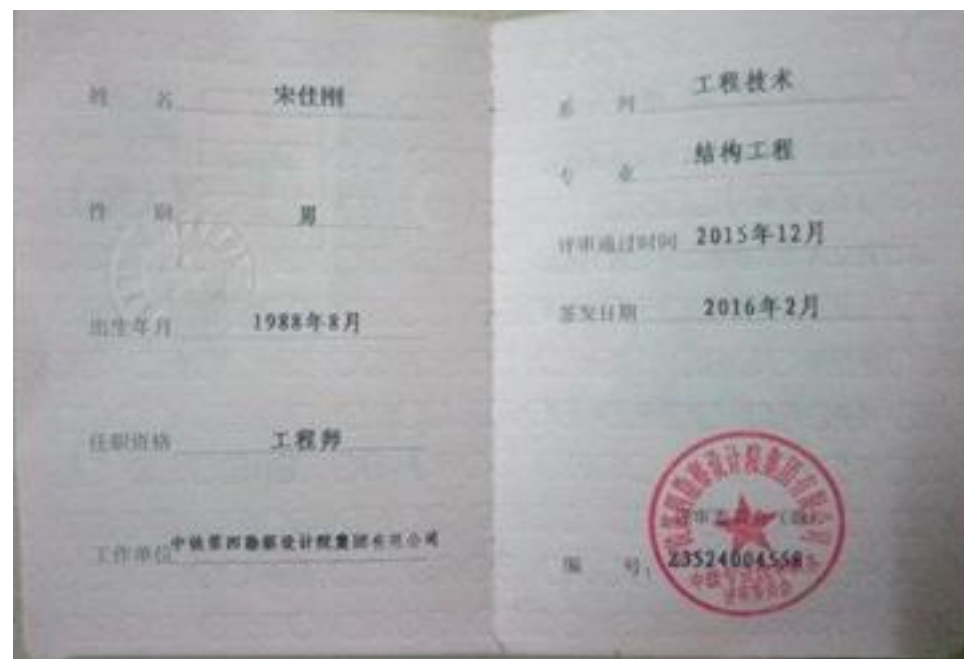 姓 名 宋佳刚
性 别 男
出生年月 1988年8月
任职资格 工程师
工作单位 中铁第四勘察设计院集团有限公司
系 列 工程技术
专 业 结构工程
评审通过时间 2015年12月
签发日期 2016年2月
编 号: 23524004558